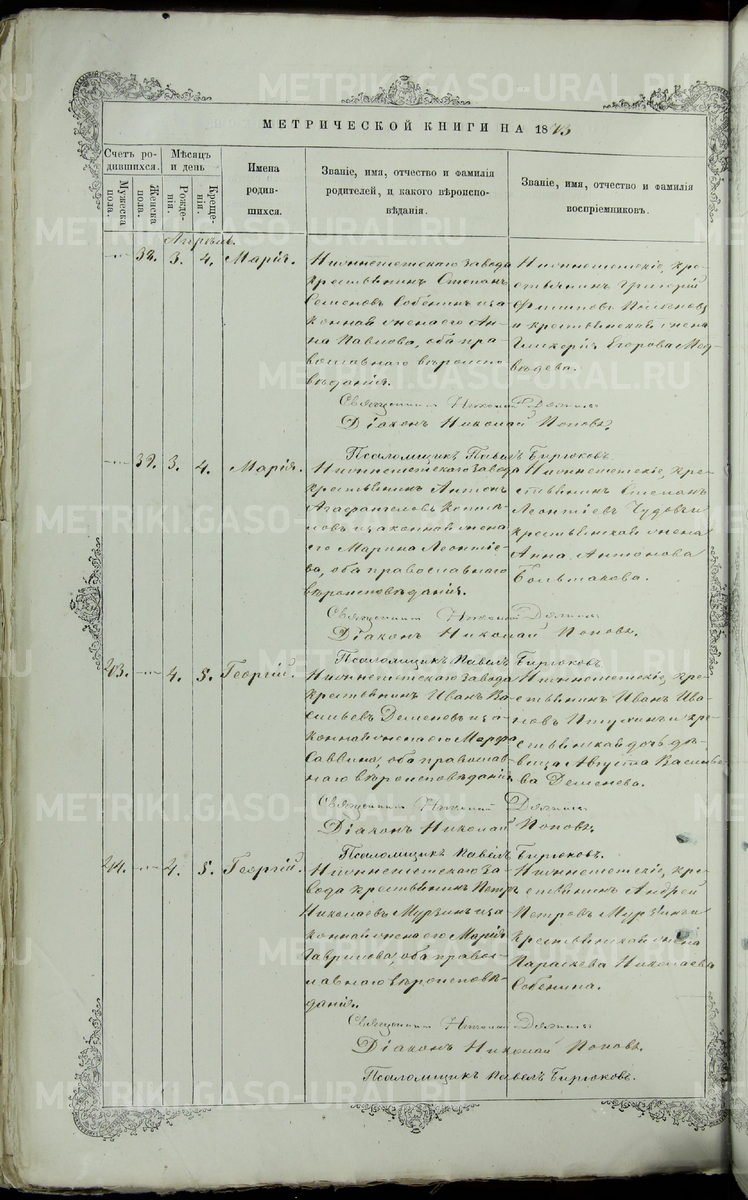 МЕТРИЧЕСКОЙ КНИГИ НА 1873
Счетъ родившихся.
Мужеска пола.
Женска пола.
Мѣсяцъ и день
Рожденія.
Крещенія.
Имена родившихся.
Званіе, имя, отчество и фамилія родителей, и какого вѣроисповѣданія.
Званіе, имя, отчество и фамилія воспріемниковъ.
Апрѣль.
38. 3. 4. Марія.
Нижнесетскаго завода
крестьянинъ Степанъ
Семеновъ Собенинъ и за
конная жена его Ан
на Павлова, оба пра
вославнаго вѣроиспо
вѣданія.
Нижнесетскіе, кре
стьянинъ Григорій
Филиповъ
и крестьянская жена
Гликерія Егорова Мед
вѣдева.
Священникъ Николай
Діаконъ Николай Поповъ.
Псаломщикъ Павелъ Бирюковъ.
39. 3. 4. Марія.
Нижнесетскаго завода
крестьянинъ Антонъ
Агафангеловъ
и законная жена
его Марина Леонтіе
ва, оба православнаго
вѣроисповѣданія.
Нижнесетскіе, кре
стьянинъ Степанъ
Леонтіевъ Чудовъ и
крестьянская жена
Анна Антонова
Большакова.
Священникъ Николай
Діаконъ Николай Поповъ.
Псаломщикъ Павелъ Бирюковъ.
43. 4. 5. Георгій.
Нижнесетскаго завода
крестьянинъ Иванъ Ва
сильевъ Деменевъ и за
конная жена его Марфа
Саввина, оба православ
наго вѣроисповѣданія
Нижнесетскіе, кре
стьянинъ Иванъ Ива
новъ Птухинъ и кре
стьянская дочь дѣ
вица Августа Василье
ва Деменева.
Священникъ Николай
Діаконъ Николай Поповъ.
Псаломщикъ Павелъ Бирюковъ.
44. 4. 5. Георгій.
Нижнесетскаго за
вода крестьянинъ Петръ
Николаевъ Мурзинъ и за
конная жена его Марія
Гаврилова, оба правос
лавнаго вѣроисповѣ
данія.
Нижнесетскіе, кре
стьянинъ Андрей
Петровъ Мурзинъ и
крестьянская жена
Параскева Николаева
Собенина.
Священникъ Николай
Діаконъ Николай Поповъ.
Псаломщикъ Павелъ Бирюковъ.
METRIKI.GASO-URAL.RU